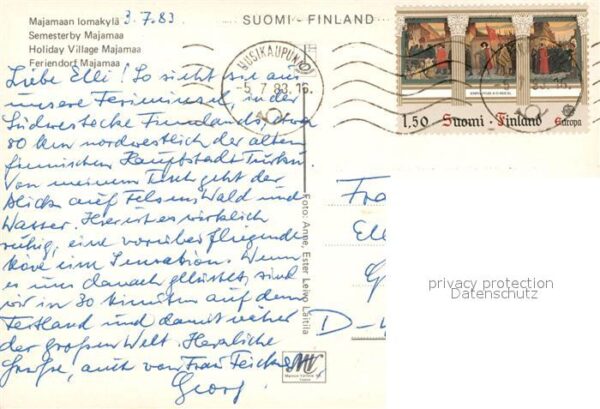 Majamaan lomakylä 3.7.83
Semesterby Majamaa
Holiday Village Majamaa
Feriendorf Majamaa
SUOMI - FINLAND
UUSIKAUPUNKI
-5.7.83.16.
1,50 Suomi - Finland Europa
Liebe Elli! So sieht sie aus
unsere Ferieninsel, in der
Südwestecke Finnlands, etwa
80 km nordwestlich der alten
finnischen Hauptstadt Turku.
Von meinem Tisch geht der
Blick auf Fels und Wald und
Wasser. Hier ist es wirklich
ruhig, eine vorüberfliegende
Möve eine Sensation. Wenn
es uns danach gelüstet, sind
wir in 30 Minuten auf dem
Festland und damit näher
der großen Welt. Herzliche
Grüße, auch von Frau
Georg
Foto: Anne, Ester Leivo Laitila
Fra
Ell
D-
privacy protection
Datenschutz